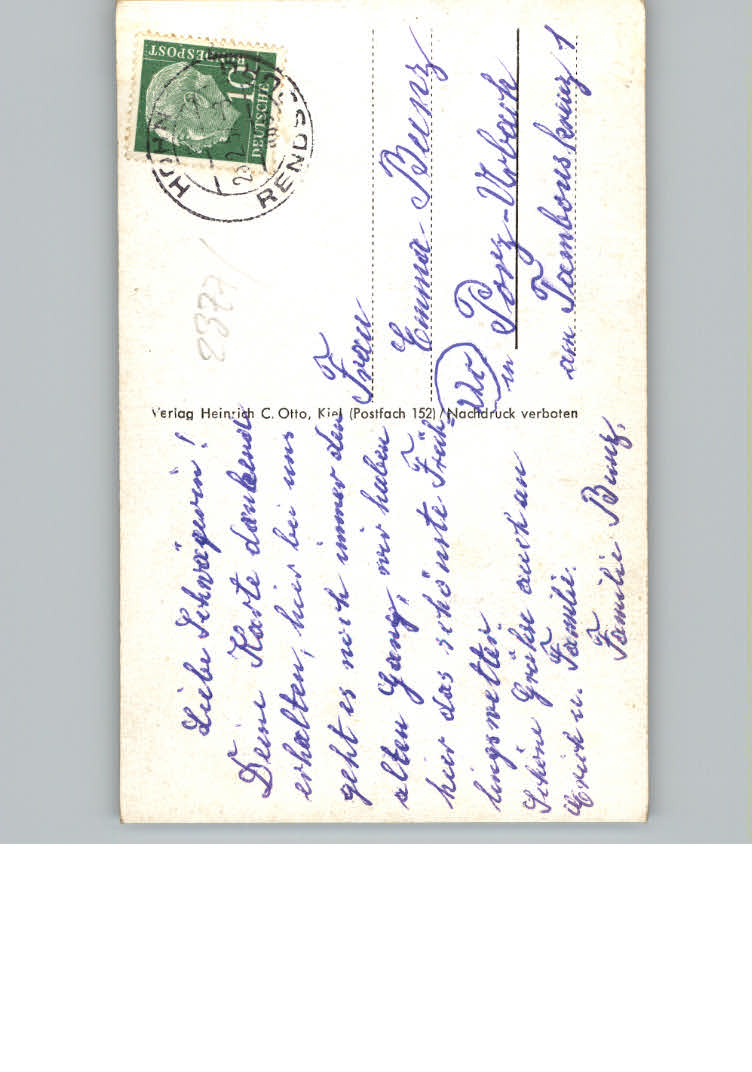 Liebe Schwägerin!
Deine Karte dankend
erhalten, hier bei uns
geht es noch immer den
alten Gang, wir haben
hier das schönste Früh-
lingswetter.
Schöne Grüße auch an
Erich u. Familie.
Familie Bunz.
Verlag Heinrich C. Otto, Kiel (Postfach 152) / Nachdruck verboten
DEUTSCHE
BUNDESPOST
10
HOHN
RENDSB
Frau
Emma Bunz
22c
in Porz-Urbach
am Tambourskreuz 1
2377/